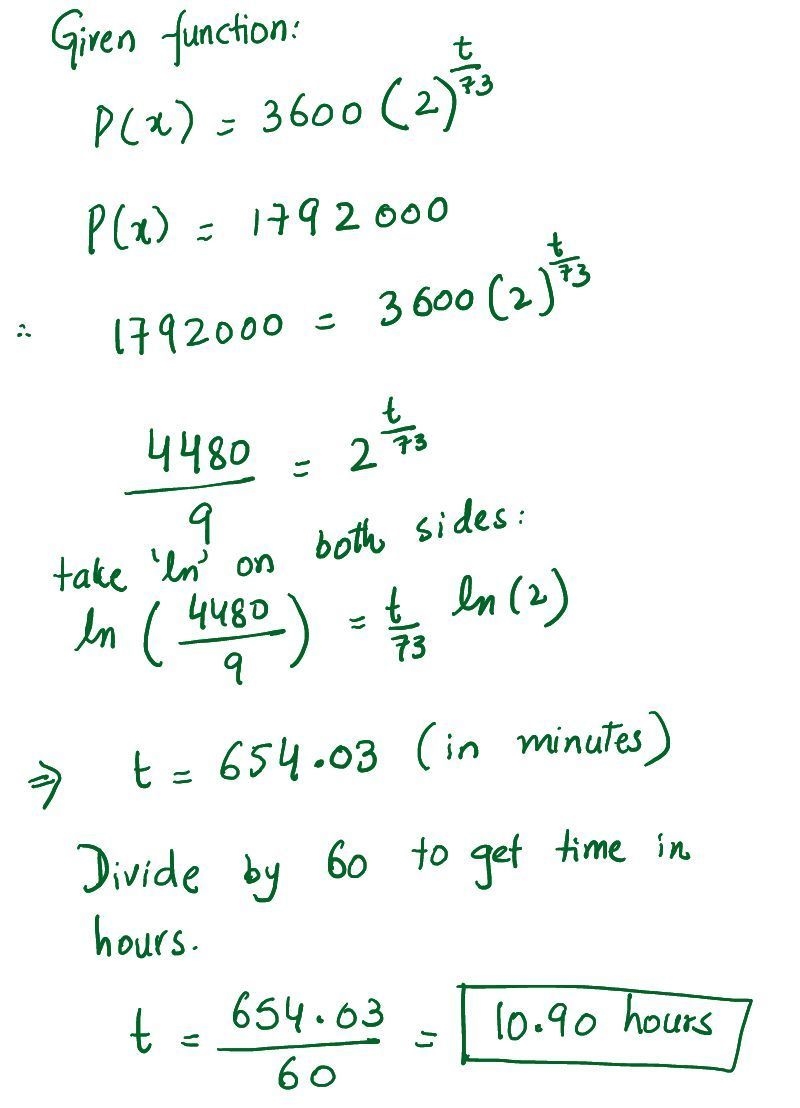 Given function:
P(x) = 3600 (2)^(t/73)
P(x) = 1792000
∴ 1792000 = 3600 (2)^(t/73)
4480/9 = 2^(t/73)
take 'ln' on both sides:
ln (4480/9) = t/73 ln (2)
⇒ t = 654.03 (in minutes)
Divide by 60 to get time in
hours.
t = 654.03/60 = 10.90 hours